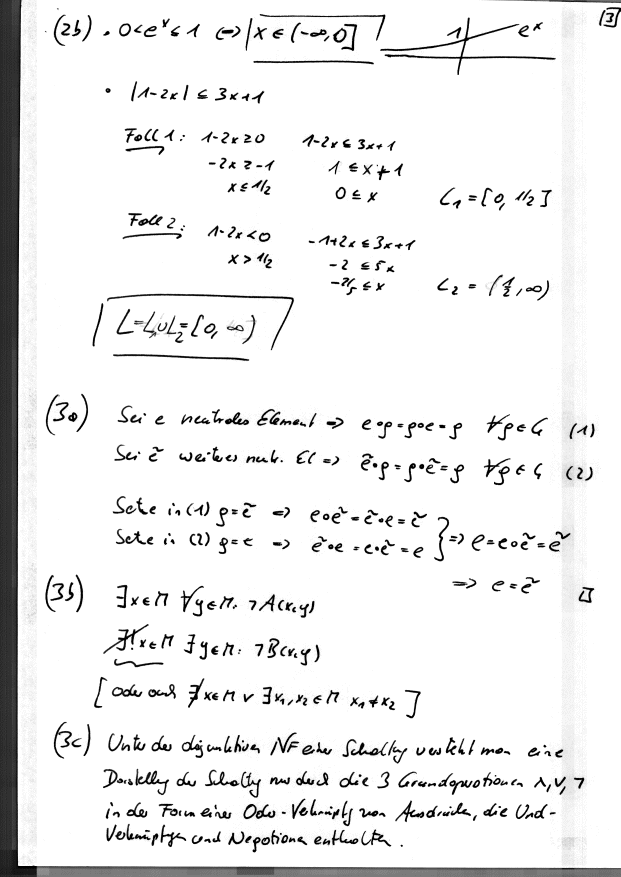 (2b) • 0<eˣ≤1 ⟺ x∈(-∞,0] 1 eˣ 3
• |1-2x| ≤ 3x+1
Fall 1: 1-2x≥0 1-2x≤3x+1
-2x≥-1 1≤x+1
x≤1/2 0≤x L₁=[0, 1/2]
Fall 2: 1-2x<0 -1+2x≤3x+1
x>1/2 -2≤5x
-2/5≤x L₂=(1/2,∞)
L=L₁∪L₂=[0,∞)
(3a) Sei e neutrales Element ⇒ e∘g=g∘e=g ∀g∈G (1)
Sei ẽ weiteres neutr. El ⇒ ẽ∘g=g∘ẽ=g ∀g∈G (2)
Setze in (1) g=ẽ ⇒ e∘ẽ=ẽ∘e=ẽ
Setze in (2) g=e ⇒ ẽ∘e=e∘ẽ=e } ⇒ e=e∘ẽ=ẽ
⇒ e=ẽ
(3b) ∃x∈M ∀y∈M: ¬A(x,y)
∄!x∈M ∃y∈M: ¬B(x,y)
[oder auch ∄x∈M ∨ ∃x₁,x₂∈M x₁≠x₂]
(3c) Unter der disjunktiven NF einer Schaltg versteht man eine
Darstellg der Schaltg nur durch die 3 Grundoperationen ∧,∨,¬
in der Form einer Oder-Verknüpfg von Ausdrücken, die Und-
Verknüpfgen und Negationen enthalten.